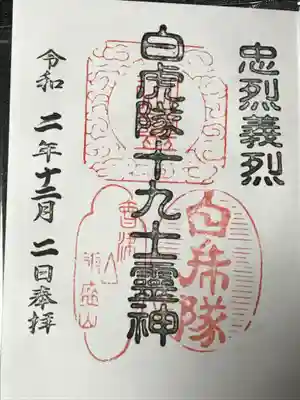 忠烈義烈
白虎隊十九士靈神
白虎隊
令和二年十二月二日奉拝